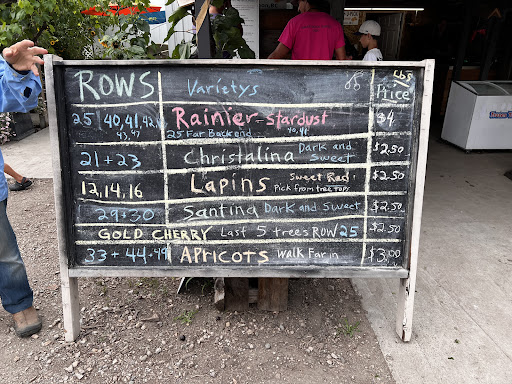 ROWS Varietys Lbs Price
25 | 40, 41, 42, Rainier - Stardust $4
43, 47 25 Far Back end 40, 41
21 + 23 Christalina Dark and Sweet $2.50
12, 14, 16 Lapins Sweet Red! Pick from tree tops $2.50
29 + 30 Santina Dark and Sweet $2.50
GOLD CHERRY Last 5 trees ROW 25 $2.50
33 + 44 - 49 Apricots Walk Far in $3.00